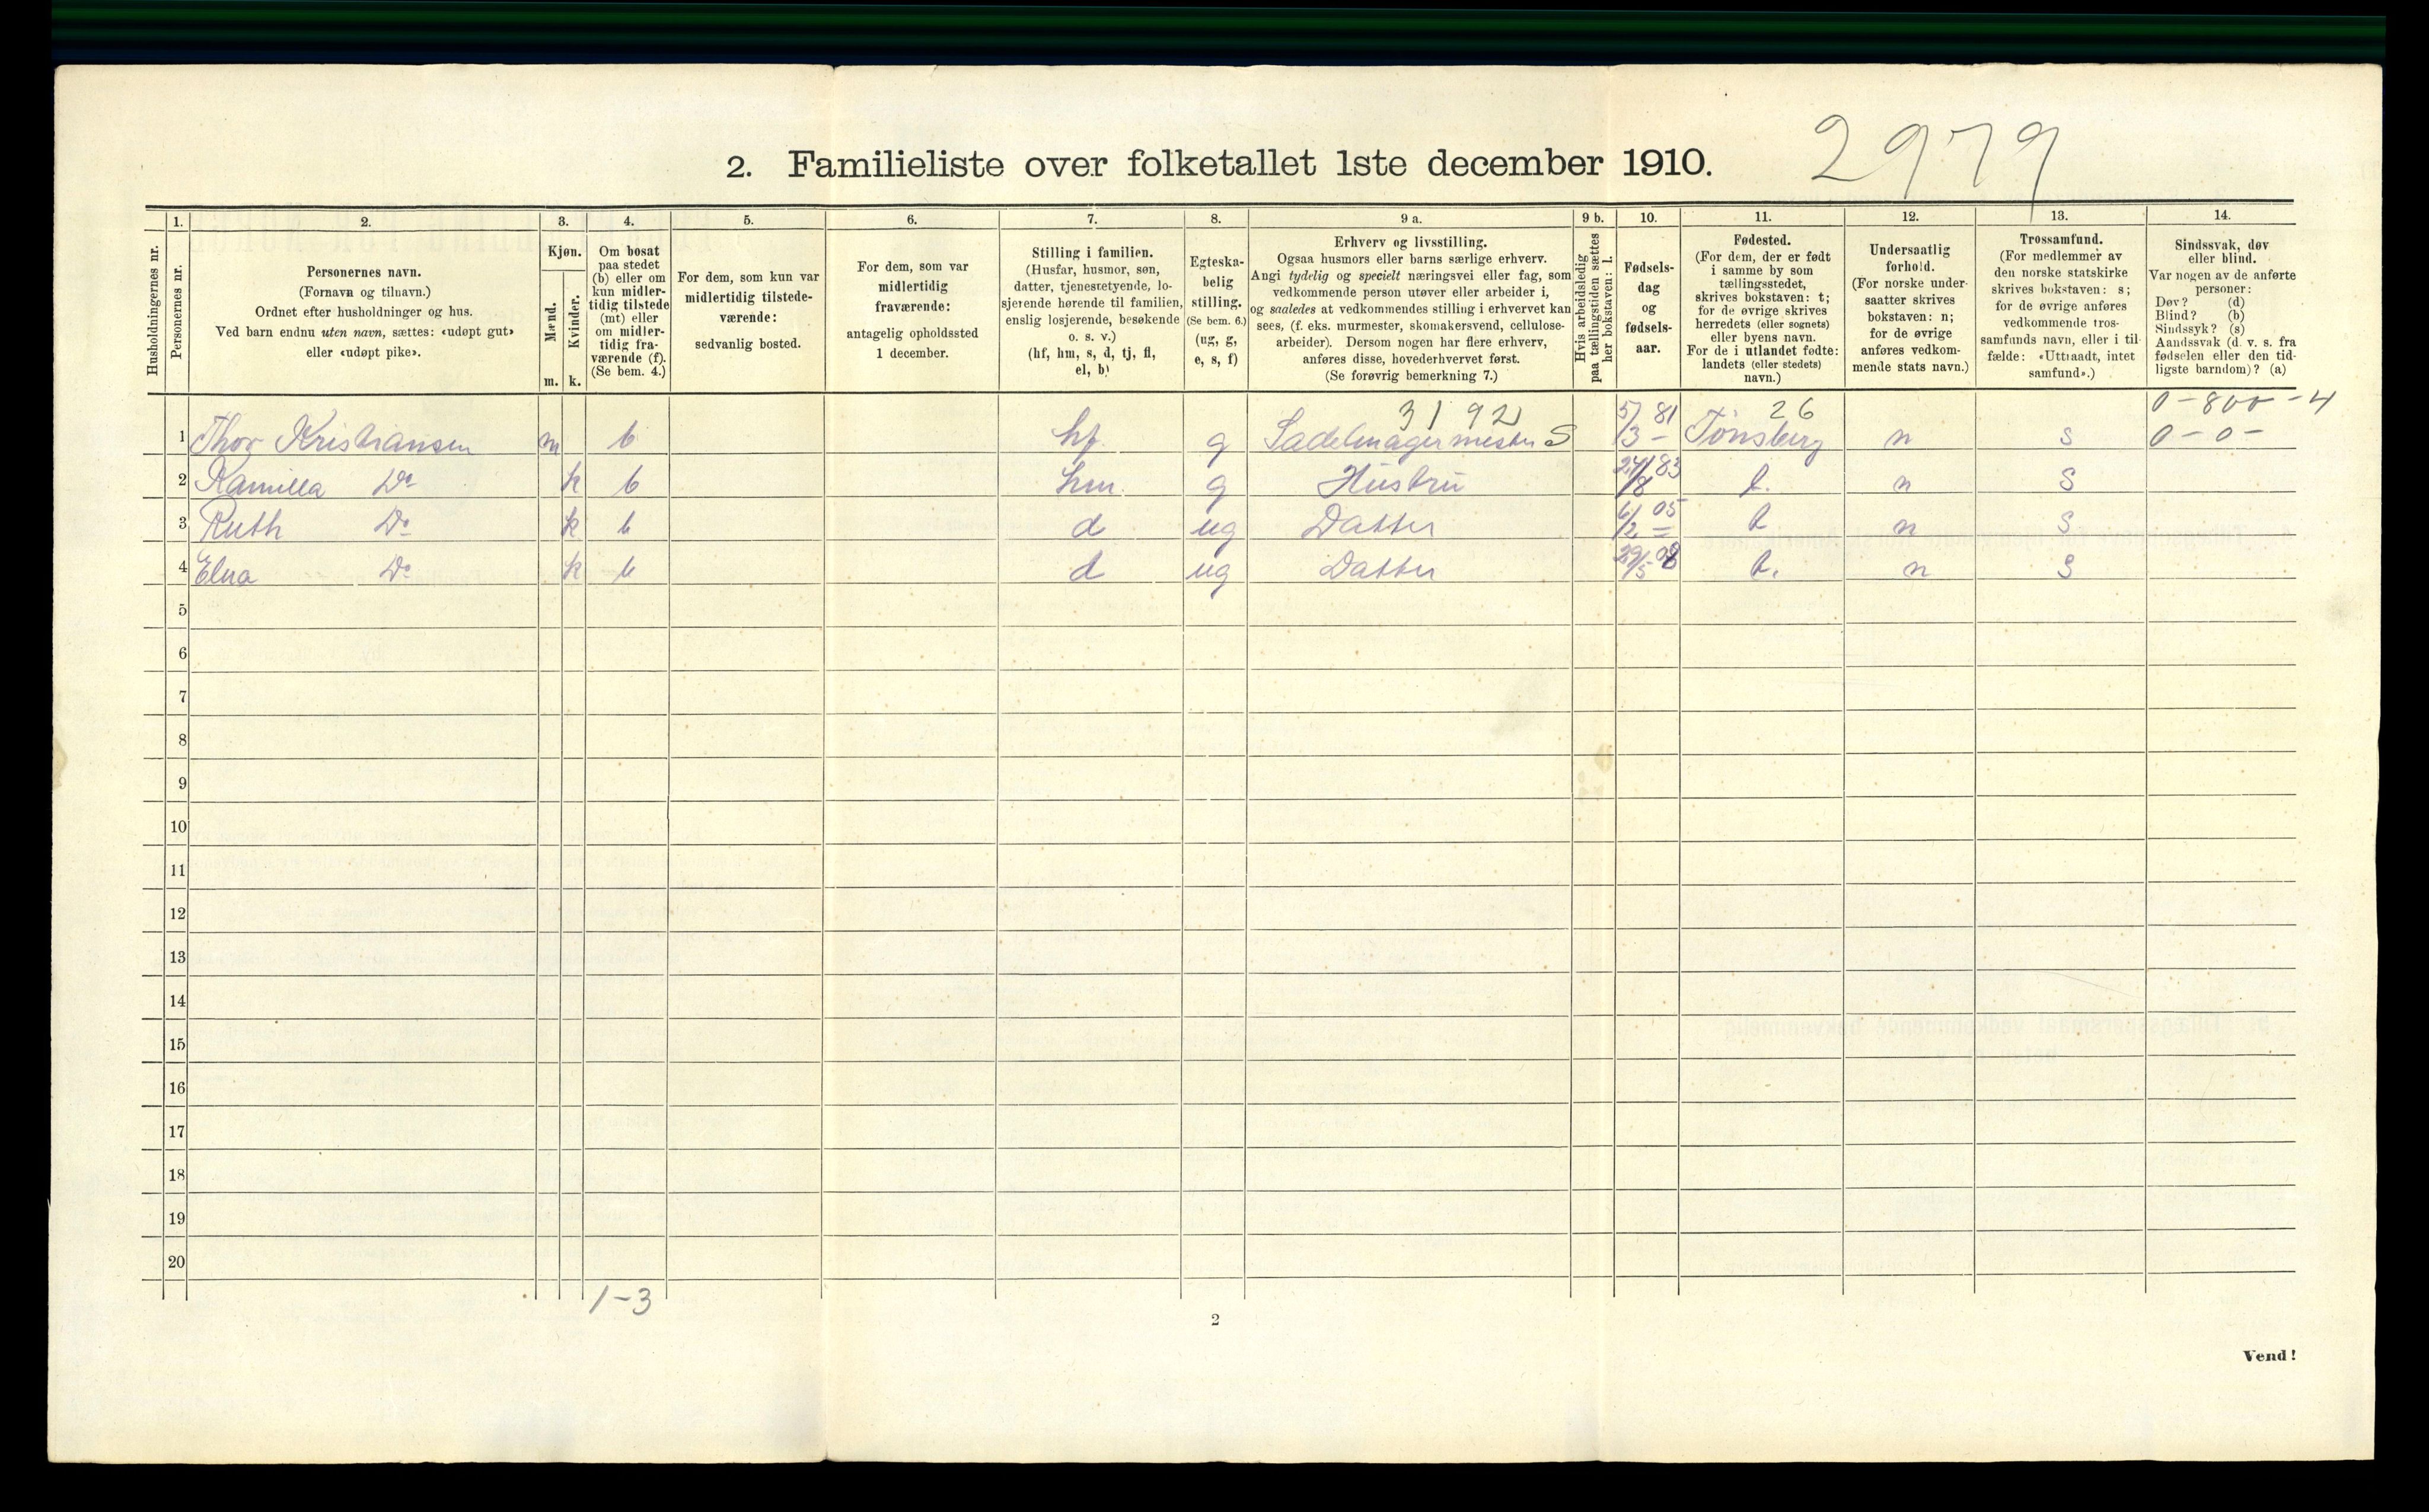 2979
2. Familieliste over folketallet 1ste december 1910.
Husholdningernes nr.
1.
Personernes nr.
2.
Personernes navn.
(Fornavn og tilnavn.)
Ordnet efter husholdninger og hus.
Ved barn endnu uten navn, sættes: «udøpt gut»
eller «udøpt pike».
3.
Kjøn.
Mænd.
Kvinder.
m. k.
4.
Om bosat
paa stedet
(b) eller om
kun midler-
tidig tilstede
(mt) eller
om midler-
tidig fra-
værende (f).
(Se bem. 4.)
5.
For dem, som kun var
midlertidig tilstede-
værende:
sedvanlig bosted.
6.
For dem, som var
midlertidig
fraværende:
antagelig opholdssted
1 december.
7.
Stilling i familien.
(Husfar, husmor, søn,
datter, tjenestetyende, lo-
sjerende hørende til familien,
enslig losjerende, besøkende
o. s. v.)
(hf, hm, s, d, tj, fl,
el, b)
8.
Egteska-
belig
stilling.
(Se bem. 6.)
(ug, g,
e, s, f)
9 a.
Erhverv og livsstilling.
Ogsaa husmors eller barns særlige erhverv.
Angi tydelig og specielt næringsvei eller fag, som
vedkommende person utøver eller arbeider i,
og saaledes at vedkommendes stilling i erhvervet kan
sees, (f. eks. murmester, skomakersvend, cellulose-
arbeider). Dersom nogen har flere erhverv,
anføres disse, hovederhvervet først.
(Se forøvrig bemerkning 7.)
9 b.
Hvis arbeidsledig
paa tællingstiden sættes
her bokstaven: l.
10.
Fødsels-
dag
og
fødsels-
aar.
11.
Fødested.
(For dem, der er født
i samme by som
tællingsstedet,
skrives bokstaven: t;
for de øvrige skrives
herredets (eller sognets)
eller byens navn.
For de i utlandet fødte:
landets (eller stedets)
navn.)
12.
Undersaatlig
forhold.
(For norske under-
saatter skrives
bokstaven: n;
for de øvrige
anføres vedkom-
mende stats navn.)
13.
Trossamfund.
(For medlemmer av
den norske statskirke
skrives bokstaven: s;
for de øvrige anføres
vedkommende tros-
samfunds navn, eller i til-
fælde: «Uttraadt, intet
samfund».)
14.
Sindssvak, døv
eller blind.
Var nogen av de anførte
personer:
Døv? (d)
Blind? (b)
Sindssyk? (s)
Aandssvak (d. v. s. fra
fødselen eller den tid-
ligste barndom)? (a)
3192 26 0-800-4
1 Thor Kristiansen m b hf. g Sadelmagermester S 5/3 81 Tønsberg n s 0-0-
2 Kamilla Do k b hm. g Hustru 24/8 83 t. n s
3 Ruth Do k b d ug Datter 6/2 05 t n s
4 Elna Do k b d ug Datter 29/5 08 t. n s
5
6
7
8
9
10
11
12
13
14
15
16
17
18
19
20
1-3
2
Vend!